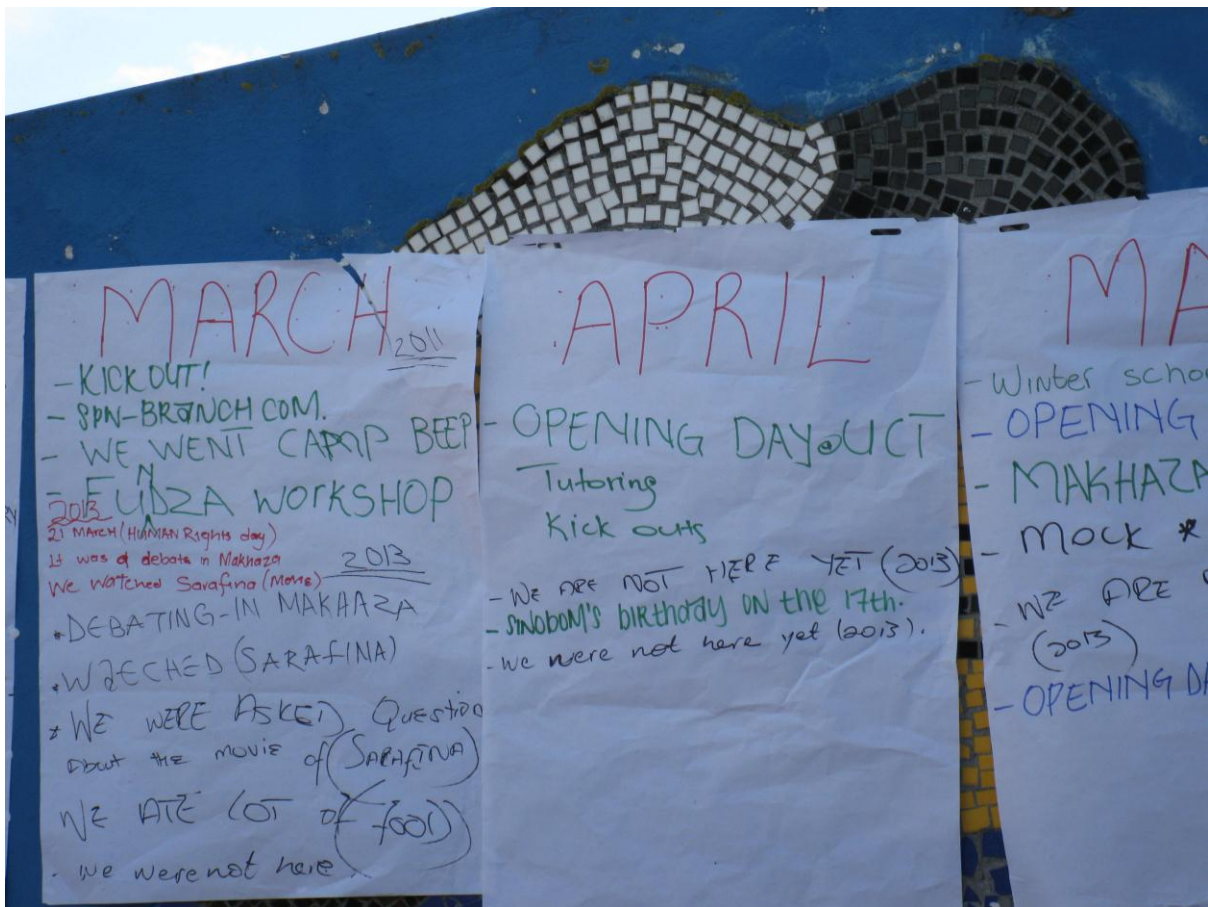 MARCH
2011
- KICK OUT!
- SPN-BRANCH COM.
- WE WENT CAMP BEEP
- FUNDZA WORKSHOP
2013
21 MARCH (HUMAN Rights day)
It was a debate in Makhaza
2013
We watched Sarafina (Movie)
* DEBATING-IN MAKHAZA
WATECHED (SARAFINA)
* WE WERE ASKED Question
About the movie of (SARAFINA)
WE ATE LOT of (food)
- we were not here
APRIL
- OPENING DAY UCT
Tutoring
Kick outs
- WE ARE NOT HERE YET (2013)
- SINOBOM'S birthday ON the 17th.
- we were not here yet (2013).
MA
- Winter schoo
- OPENING
- MAKHAZA
- MOCK *
- WE ARE
(2013)
- OPENING DA